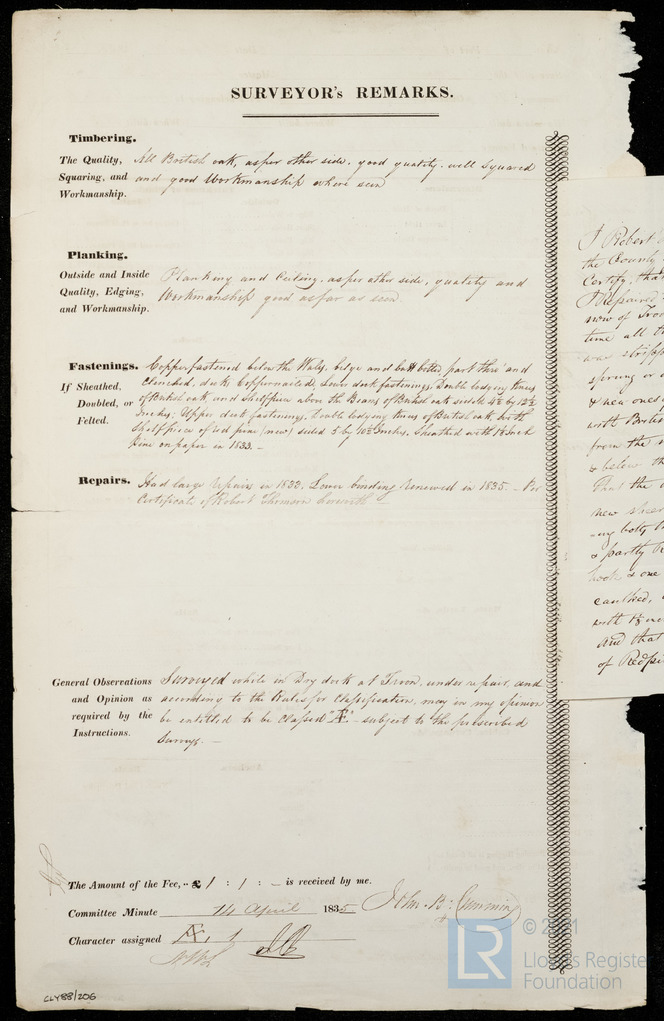 SURVEYOR's REMARKS.
Timbering.
The Quality, Squaring, and Workmanship.
All British oak, as per other side. good quality. well squared
and good Workmanship where seen
Planking.
Outside and Inside Quality, Edging, and Workmanship.
Planking and Ceiling, as per other side, quality and
Workmanship good as far as seen
Fastenings.
If Sheathed, Doubled, or Felted.
Copper fastened below the Wales, bilge and butt bolted part thro' and
Clenched, deck Coppernailed, Lower deck fastenings, Double lodging knees
of British oak, and Shelfpiece above the Beams of British oak sided
Inches, Upper deck fastenings, double lodging knees of British oak with
Shelf piece of red pine (new) sided 5 by 10½ Inches, Sheathed with Inch
Pine on paper in 1833. –
Repairs.
Had large repairs in 1833. Lower binding renewed in 1835. – Per
Certificate of Robert Thomson herewith –
General Observations and Opinion as required by the Instructions.
Surveyed while in Dry dock at Troon, under repair, and
according to the Rules for Classification, may in my opinion
be entitled to be Classed "Æ" – subject to the prescribed
Survey. –
The Amount of the Fee, ·· £ 1 : 1 : – is received by me.
John. B: Cumming
Committee Minute 14 April 1835
Character assigned Æ, 1
CLY88/206
I Robert
the County
Certify, that
I Repaired
now of Troon
time all th
was stripp
sprung or
& new ones
with British
from the
& below th
That the
new sheer
& partly
hooks & one
caulked,
with
And that
of Redpi
LR
© 2021
Lloyd's Register
Foundation